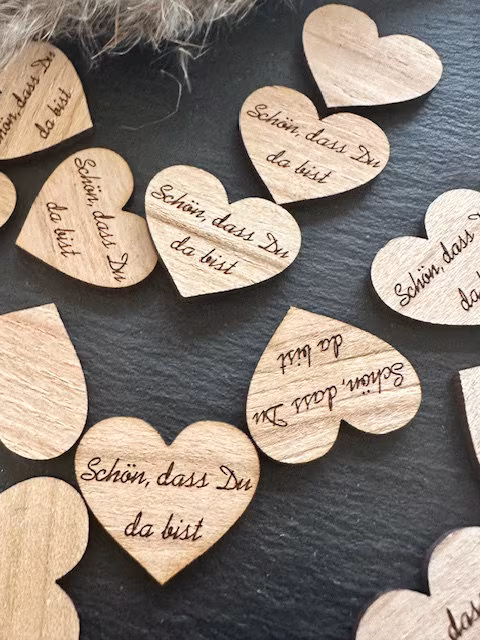 Schön, dass Du
da bist
Schön, dass Du
da bist
Schön, dass Du
da bist
Schön, dass Du
da bist
Schön, dass
da
Schön, dass Du
da bist
Schön, dass Du
da bist